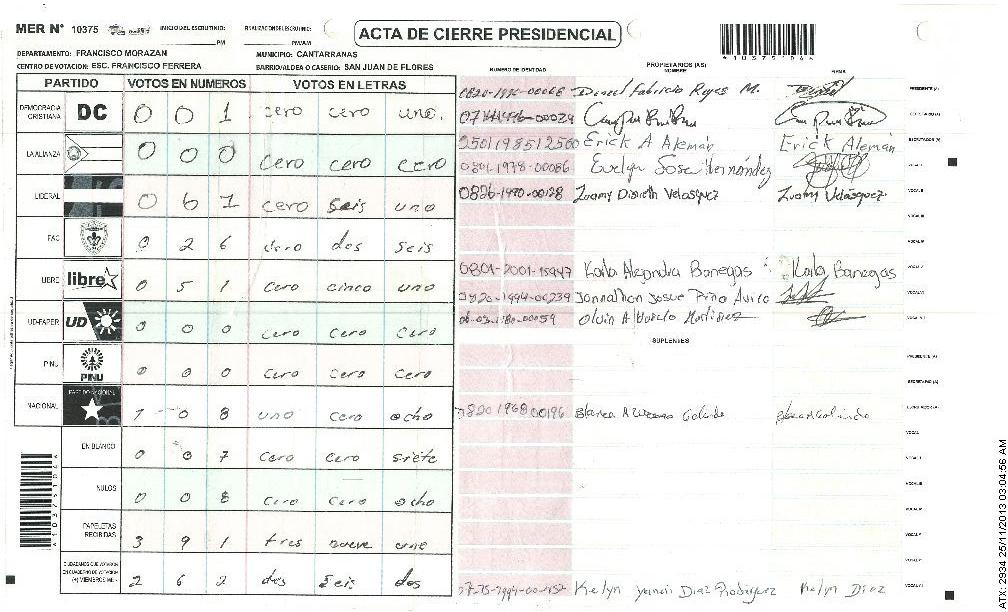 MER N° 10375 INICIO DEL ESCRUTINIO: PM FINALIZACION DEL ESCRUTINIO: PM/AM
ACTA DE CIERRE PRESIDENCIAL
DEPARTAMENTO: FRANCISCO MORAZAN MUNICIPIO: CANTARRANAS
CENTRO DE VOTACION: ESC. FRANCISCO FERRERA BARRIO/ALDEA O CASERIO: SAN JUAN DE FLORES
PARTIDO VOTOS EN NUMEROS VOTOS EN LETRAS
DEMOCRACIA CRISTIANA DC 0 0 1 cero cero uno.
LA ALIANZA 0 0 0 cero cero cero
LIBERAL 0 6 1 cero seis uno
FAC 0 2 6 cero dos seis
LIBRE libre 0 5 1 cero cinco uno
UD-FAPER UD 0 0 0 cero cero cero
PINU PINU 0 0 0 cero cero cero
NACIONAL PARTIDO NACIONAL 1 0 8 uno cero ocho
EN BLANCO 0 0 7 cero cero siete
NULOS 0 0 8 cero cero ocho
PAPELETAS RECIBIDAS 3 9 1 tres nueve uno
CIUDADANOS QUE VOTARON EN CUADERNO DE VOTACION (+) MIEMBROS MER 2 6 2 dos seis dos
NUMERO DE IDENTIDAD PROPIETARIOS (AS) NOMBRE FIRMA
Fabricio Reyes M. PRESIDENTE (A)
SECRETARIO (A)
Erick A Alemán Erick Alemán ESCRUTADOR (A)
0801-1978-00086 Evelyn Jose Hernández
0826-1990-00128 Velasquez Velásquez
0801-2001-15947 Karla Alejandra Banegas Karla Banegas
0820-1994-00239 Jonnathon Josue
Martinez
SUPLENTES
PRESIDENTE (A)
SECRETARIO (A)
0820 1968 00196 Blanca ESCRUTADOR (A)
Kelyn Diaz Rodriguez Kelyn Diaz
ATX-2934 25/11/2013 03:04:56 AM